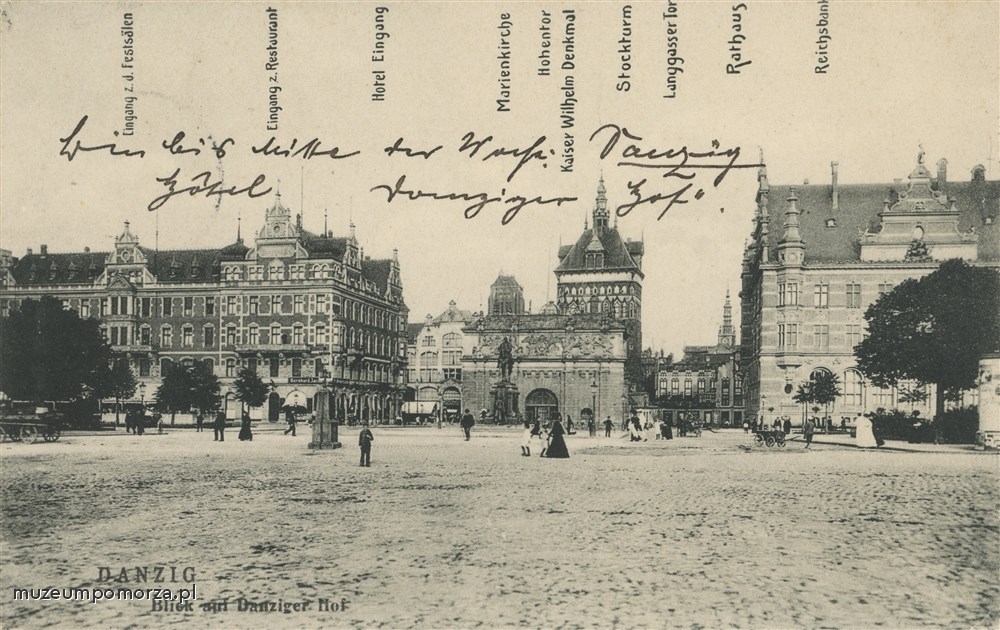 Eingang z. d. Festsälen
Eingang z. Restaurant
Hotel Eingang
Marienkirche
Hohentor
Kaiser Wilhelm Denkmal
Stockturm
Langgasser Tor
Rathaus
Reichsbank
bin bis Mitte der Woche Danzig
Hôtel Danziger Hof".
DANZIG
muzeumpomorza.pl
Blick auf Danziger Hof